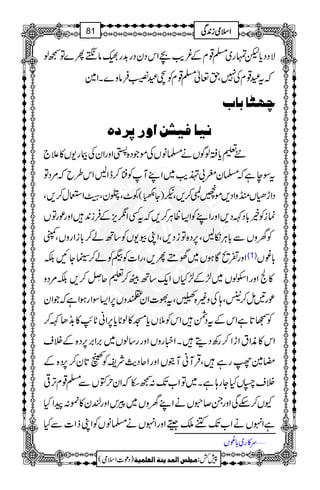 81 اسلامی زندگی
لا دد یا لیکن تمہاری مسلم قوم کے غریب بچے اس دن در بدر بھیک مانگتے پھرے تو سمجھ لو
کہ یہ عید قوم کی نہیں، حق تعالیٰ مسلم قوم کو سچی عید نصیب فرما وے۔ امین
چھٹا باب
نیا فیشن اور پردہ
نئے تعلیم یافتہ لوگوں نے مسلمانوں کی موجودہ پستی اور ان کی بیماریوں کا علاج
یہ سوچا ہے کہ مسلمان مغربی تہذیب میں اپنے آپ کو فنا کر ڈالیں اس طرح کہ مرد تو
داڑھیاں منڈوادیں مونچھیں لمبی کریں، نیکر (جانگھیا) کوٹ، پتلون، ہیٹ استعمال کریں،
نماز کو خیر باد کہہ دیں اور اپنے کو ایسا ظاہر کریں کہ یہ کسی انگریز کے فرزند ہیں اور عورتوں
کو گھروں سے باہر نکالیں، پردہ توڑ دیں، اپنی بیویوں کو ساتھ لے کر بازاروں، کمپنی
باغوں(۱) اور تفریح گاہوں میں گھومتے پھریں، رات کو بیگم کو لے کر سینما جائیں بلکہ
کالج اور اسکولوں میں لڑکے لڑکیاں ایک ساتھ بیٹھ کر تعلیم حاصل کریں بلکہ مرد و
عورتیں مل کر ٹینس، ہاکی وغیرہ کھیلیں، یہ بھوت ان عقلمندوں پر ایسا سوار ہوا ہے کہ جو ان
کو سمجھاتا ہے اس کے یہ دشمن ہیں اس کو ملاں یا مسجد کا لوٹا یا پرانی ٹائپ کا بڈھا کہہ کر
اس کا مذاق اڑا کر رکھ دیتے ہیں۔ اخباروں اور رسالوں میں برابر پردہ کے خلاف
مضامین چھپ رہے ہیں، قرآنی آیتوں اور احادیث شریفہ کو کھینچ تان کر پردہ کے
خلاف چسپاں کیا جا رہا ہے۔ میں تو اب تک نہ سمجھ سکا کہ ان حرکتوں سے مسلم قوم ترقی
کیوں کر سکے گی اور جن صاحبوں نے اپنے گھروں میں پیرس اور لندن کا نمونہ پیدا کیا
ہے انہوں نے اب تک کتنے ملک جیتے اور انہوں نے مسلمانوں کو اپنی ذات سے کیا
۱۔۔۔ سرکاری باغوں
پیش کش: مجلس المدینۃ العلمیۃ (دعوت اسلامی)